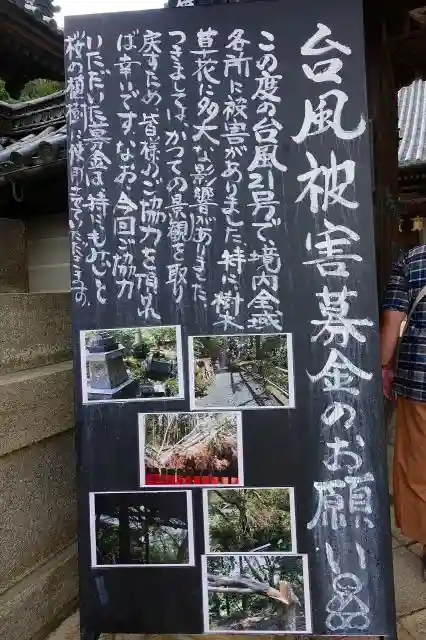 台風被害募金のお願い
この度の台風21号で、境内全域
各所に被害がありました。特に樹木
草花に多大な影響があり、
つきましては、かつての景観を取り
戻すため、皆様のご協力を頂れ
ば幸いです。なお、今回ご協力
いただいた募金は、特にもみじと
桜の植樹に使用させていただきます。